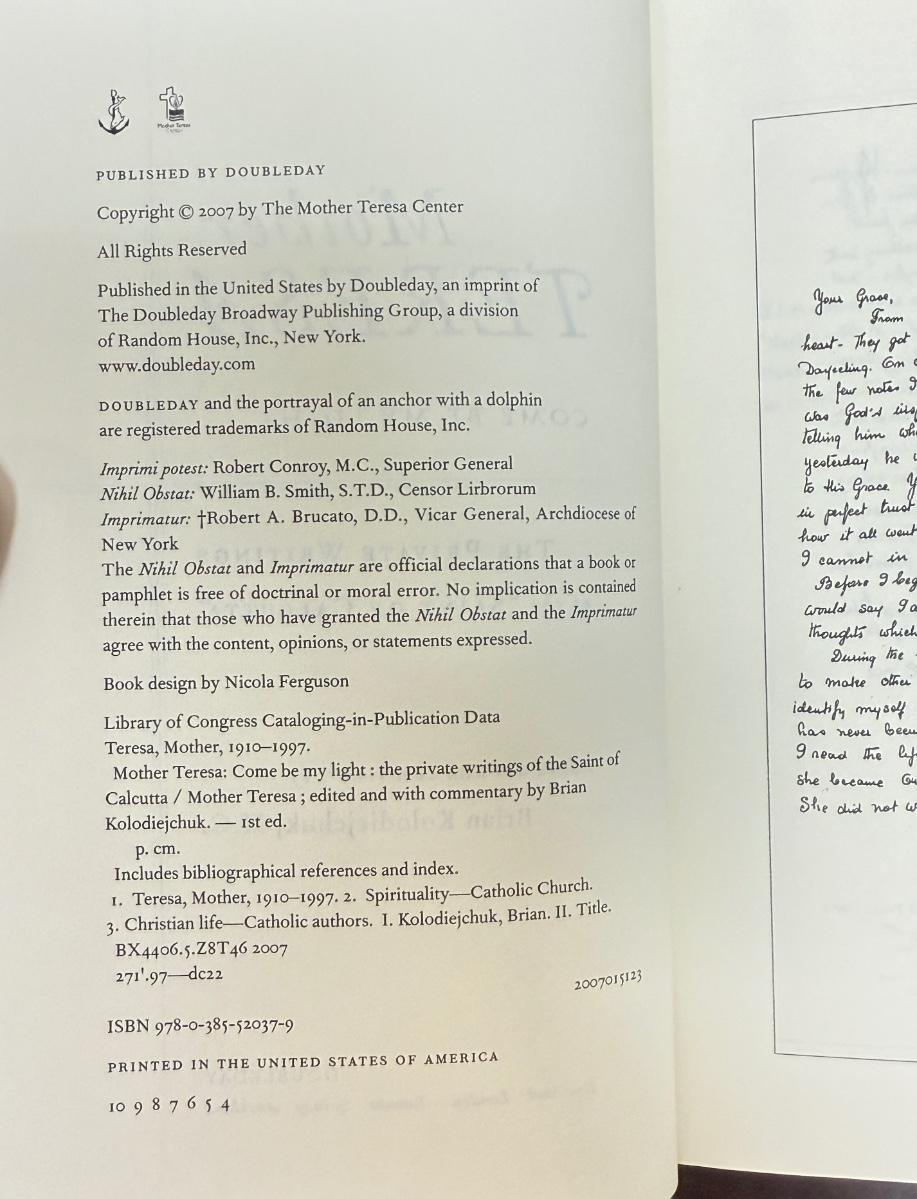 Mother Teresa
PUBLISHED BY DOUBLEDAY
Copyright © 2007 by The Mother Teresa Center
All Rights Reserved
Published in the United States by Doubleday, an imprint of
The Doubleday Broadway Publishing Group, a division
of Random House, Inc., New York.
www.doubleday.com
DOUBLEDAY and the portrayal of an anchor with a dolphin
are registered trademarks of Random House, Inc.
Imprimi potest: Robert Conroy, M.C., Superior General
Nihil Obstat: William B. Smith, S.T.D., Censor Lirbrorum
Imprimatur: †Robert A. Brucato, D.D., Vicar General, Archdiocese of
New York
The Nihil Obstat and Imprimatur are official declarations that a book or
pamphlet is free of doctrinal or moral error. No implication is contained
therein that those who have granted the Nihil Obstat and the Imprimatur
agree with the content, opinions, or statements expressed.
Book design by Nicola Ferguson
Library of Congress Cataloging-in-Publication Data
Teresa, Mother, 1910–1997.
Mother Teresa: Come be my light : the private writings of the Saint of
Calcutta / Mother Teresa ; edited and with commentary by Brian
Kolodiejchuk. — 1st ed.
p. cm.
Includes bibliographical references and index.
1. Teresa, Mother, 1910–1997. 2. Spirituality—Catholic Church.
3. Christian life—Catholic authors. I. Kolodiejchuk, Brian. II. Title.
BX4406.5.Z8T46 2007
271'.97—dc22
2007015123
ISBN 978-0-385-52037-9
PRINTED IN THE UNITED STATES OF AMERICA
10 9 8 7 6 5 4
Your Grace,
From
heart - They got
Darjeeling. On
the few notes I
was God's
telling him
yesterday he
to this Grace.
in perfect trust
how it all went
I cannot in
Before I
would say I
thoughts which
During the
to make other
identify myself
has never been
I read the
she became
She did not